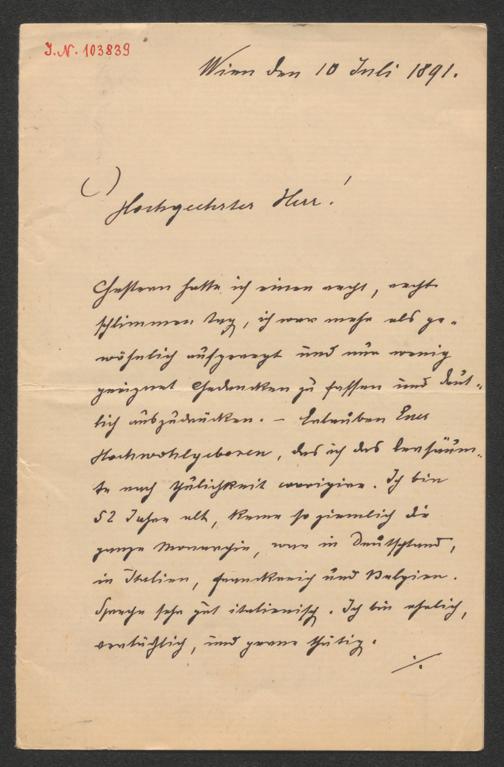 J.N. 103839
Wien den 10 Juli 1891.
Hochgeehrter Herr!
Gestern hatte ich einen recht, recht
schlimmen Tag, ich war mehr als ge-
wöhnlich aufgeregt und nur wenig
geeignet Gedancken zu fassen und deut-
lich auszudrücken. – Erlauben Euer
Hochwohlgeboren, das ich das Versäum-
te nach Thulichkeit corrigire. Ich bin
52 Jahre alt, kenne so ziemlich die
ganze Monarchie, war in Deutschland,
in Italien, Franckreich und Belgien.
Spreche sehr gut italienisch. Ich bin ehrlich,
verläßlich, und gerne thätig.
./.